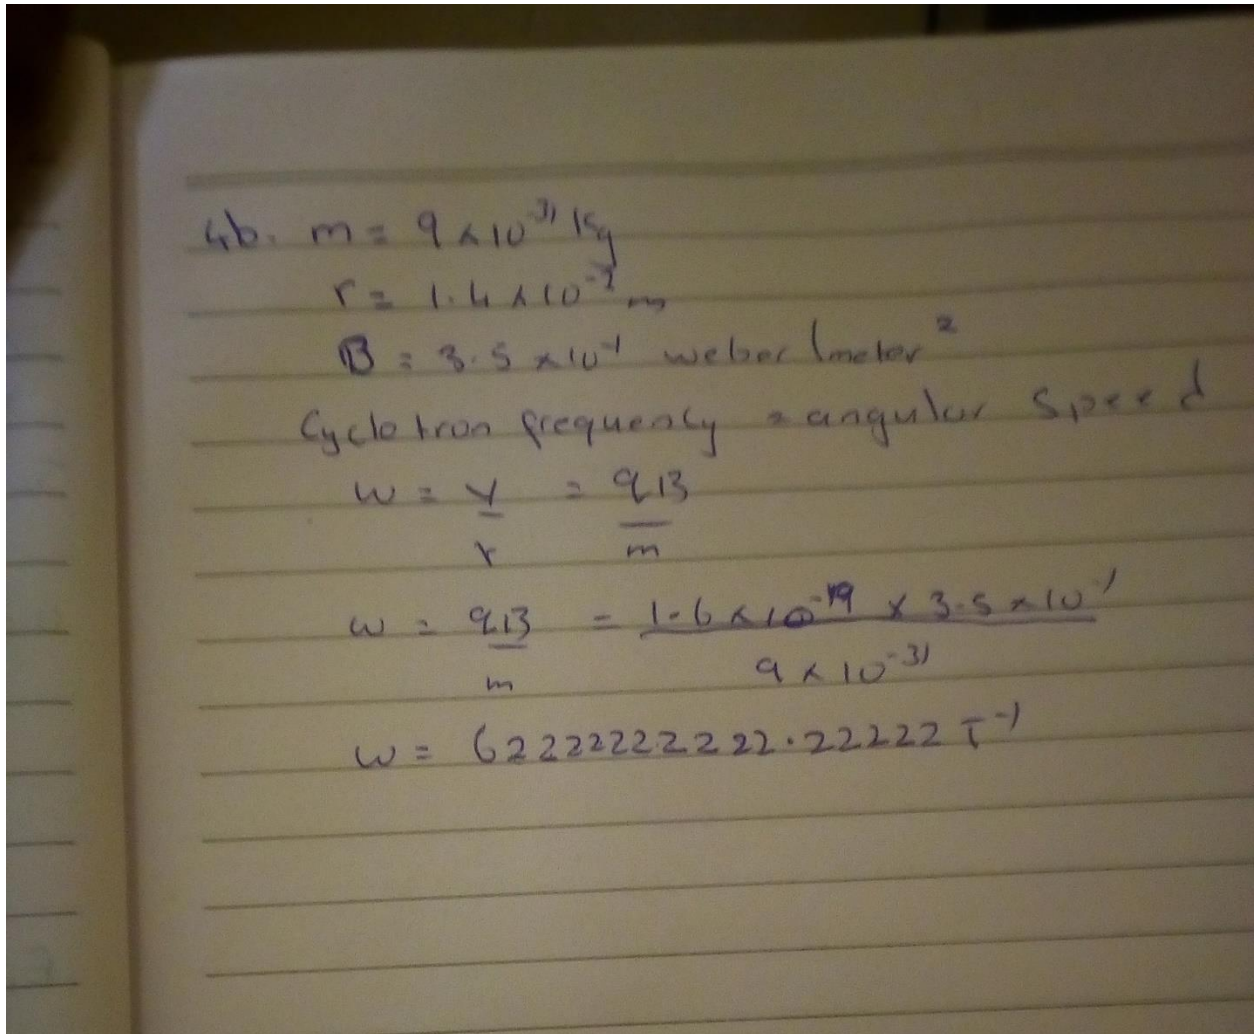 4b. m = 9 x 10⁻³¹ Kg
r = 1.4 x 10⁻⁷ m
B = 3.5 x 10⁻¹ weber / meter²
Cyclotron frequency = angular speed
w = v/r = qB/m
w = qB/m = 1.6 x 10⁻¹⁹ x 3.5 x 10⁻¹ / 9 x 10⁻³¹
w = 62222222222.22222 T⁻¹